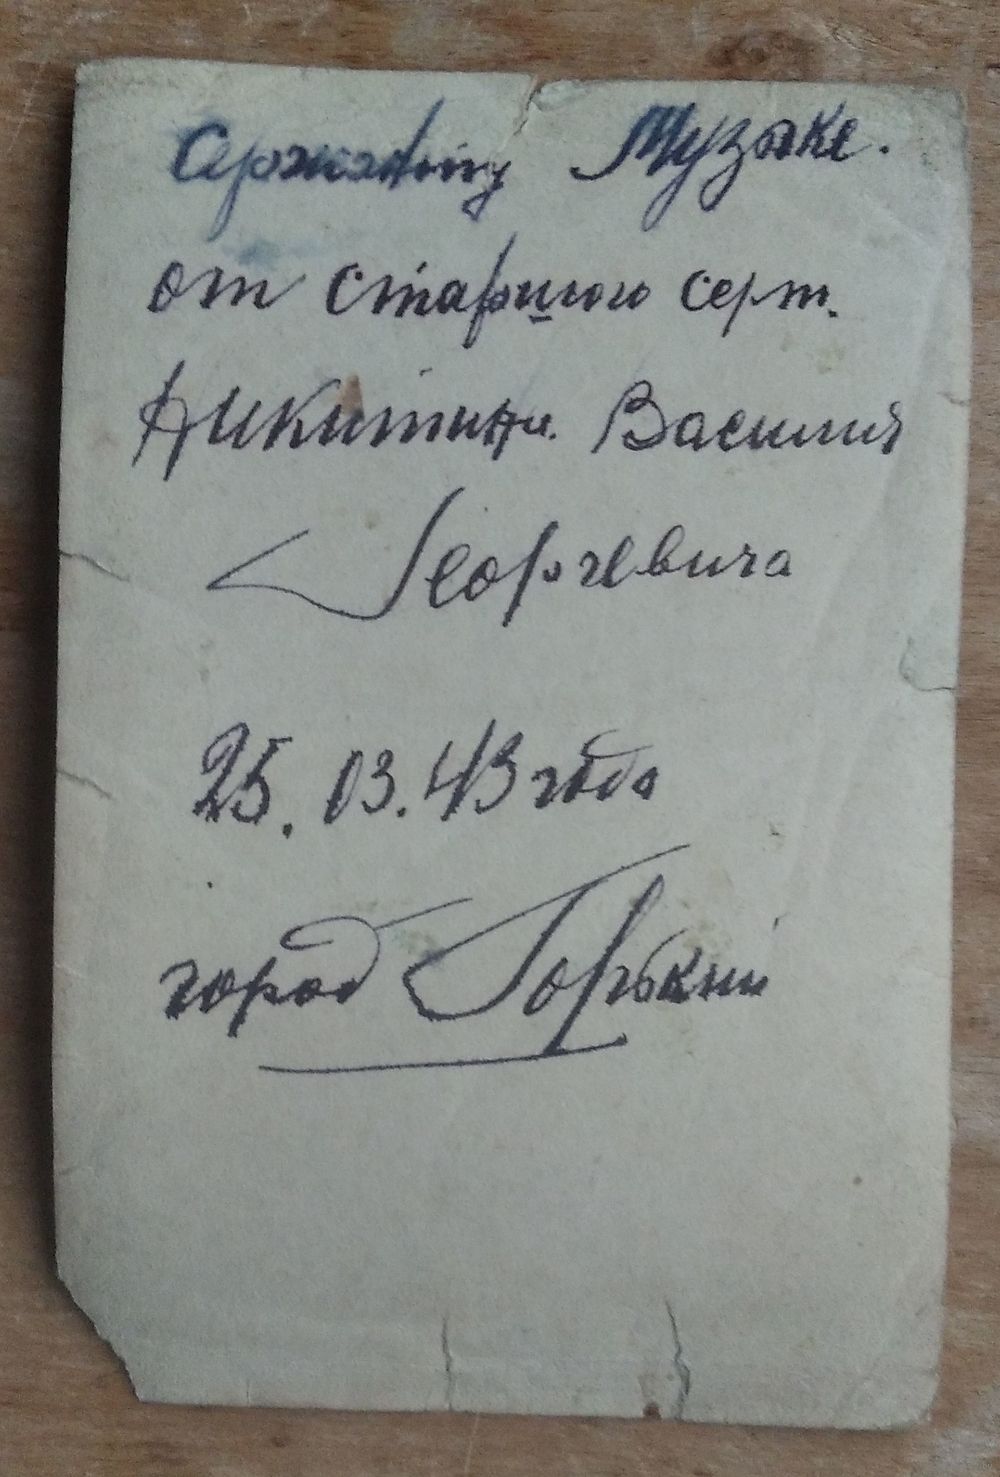 Сержанту Музыке.
от старшего серж.
Никитина Василия
Георгевича
25.03.43 года
город Горький